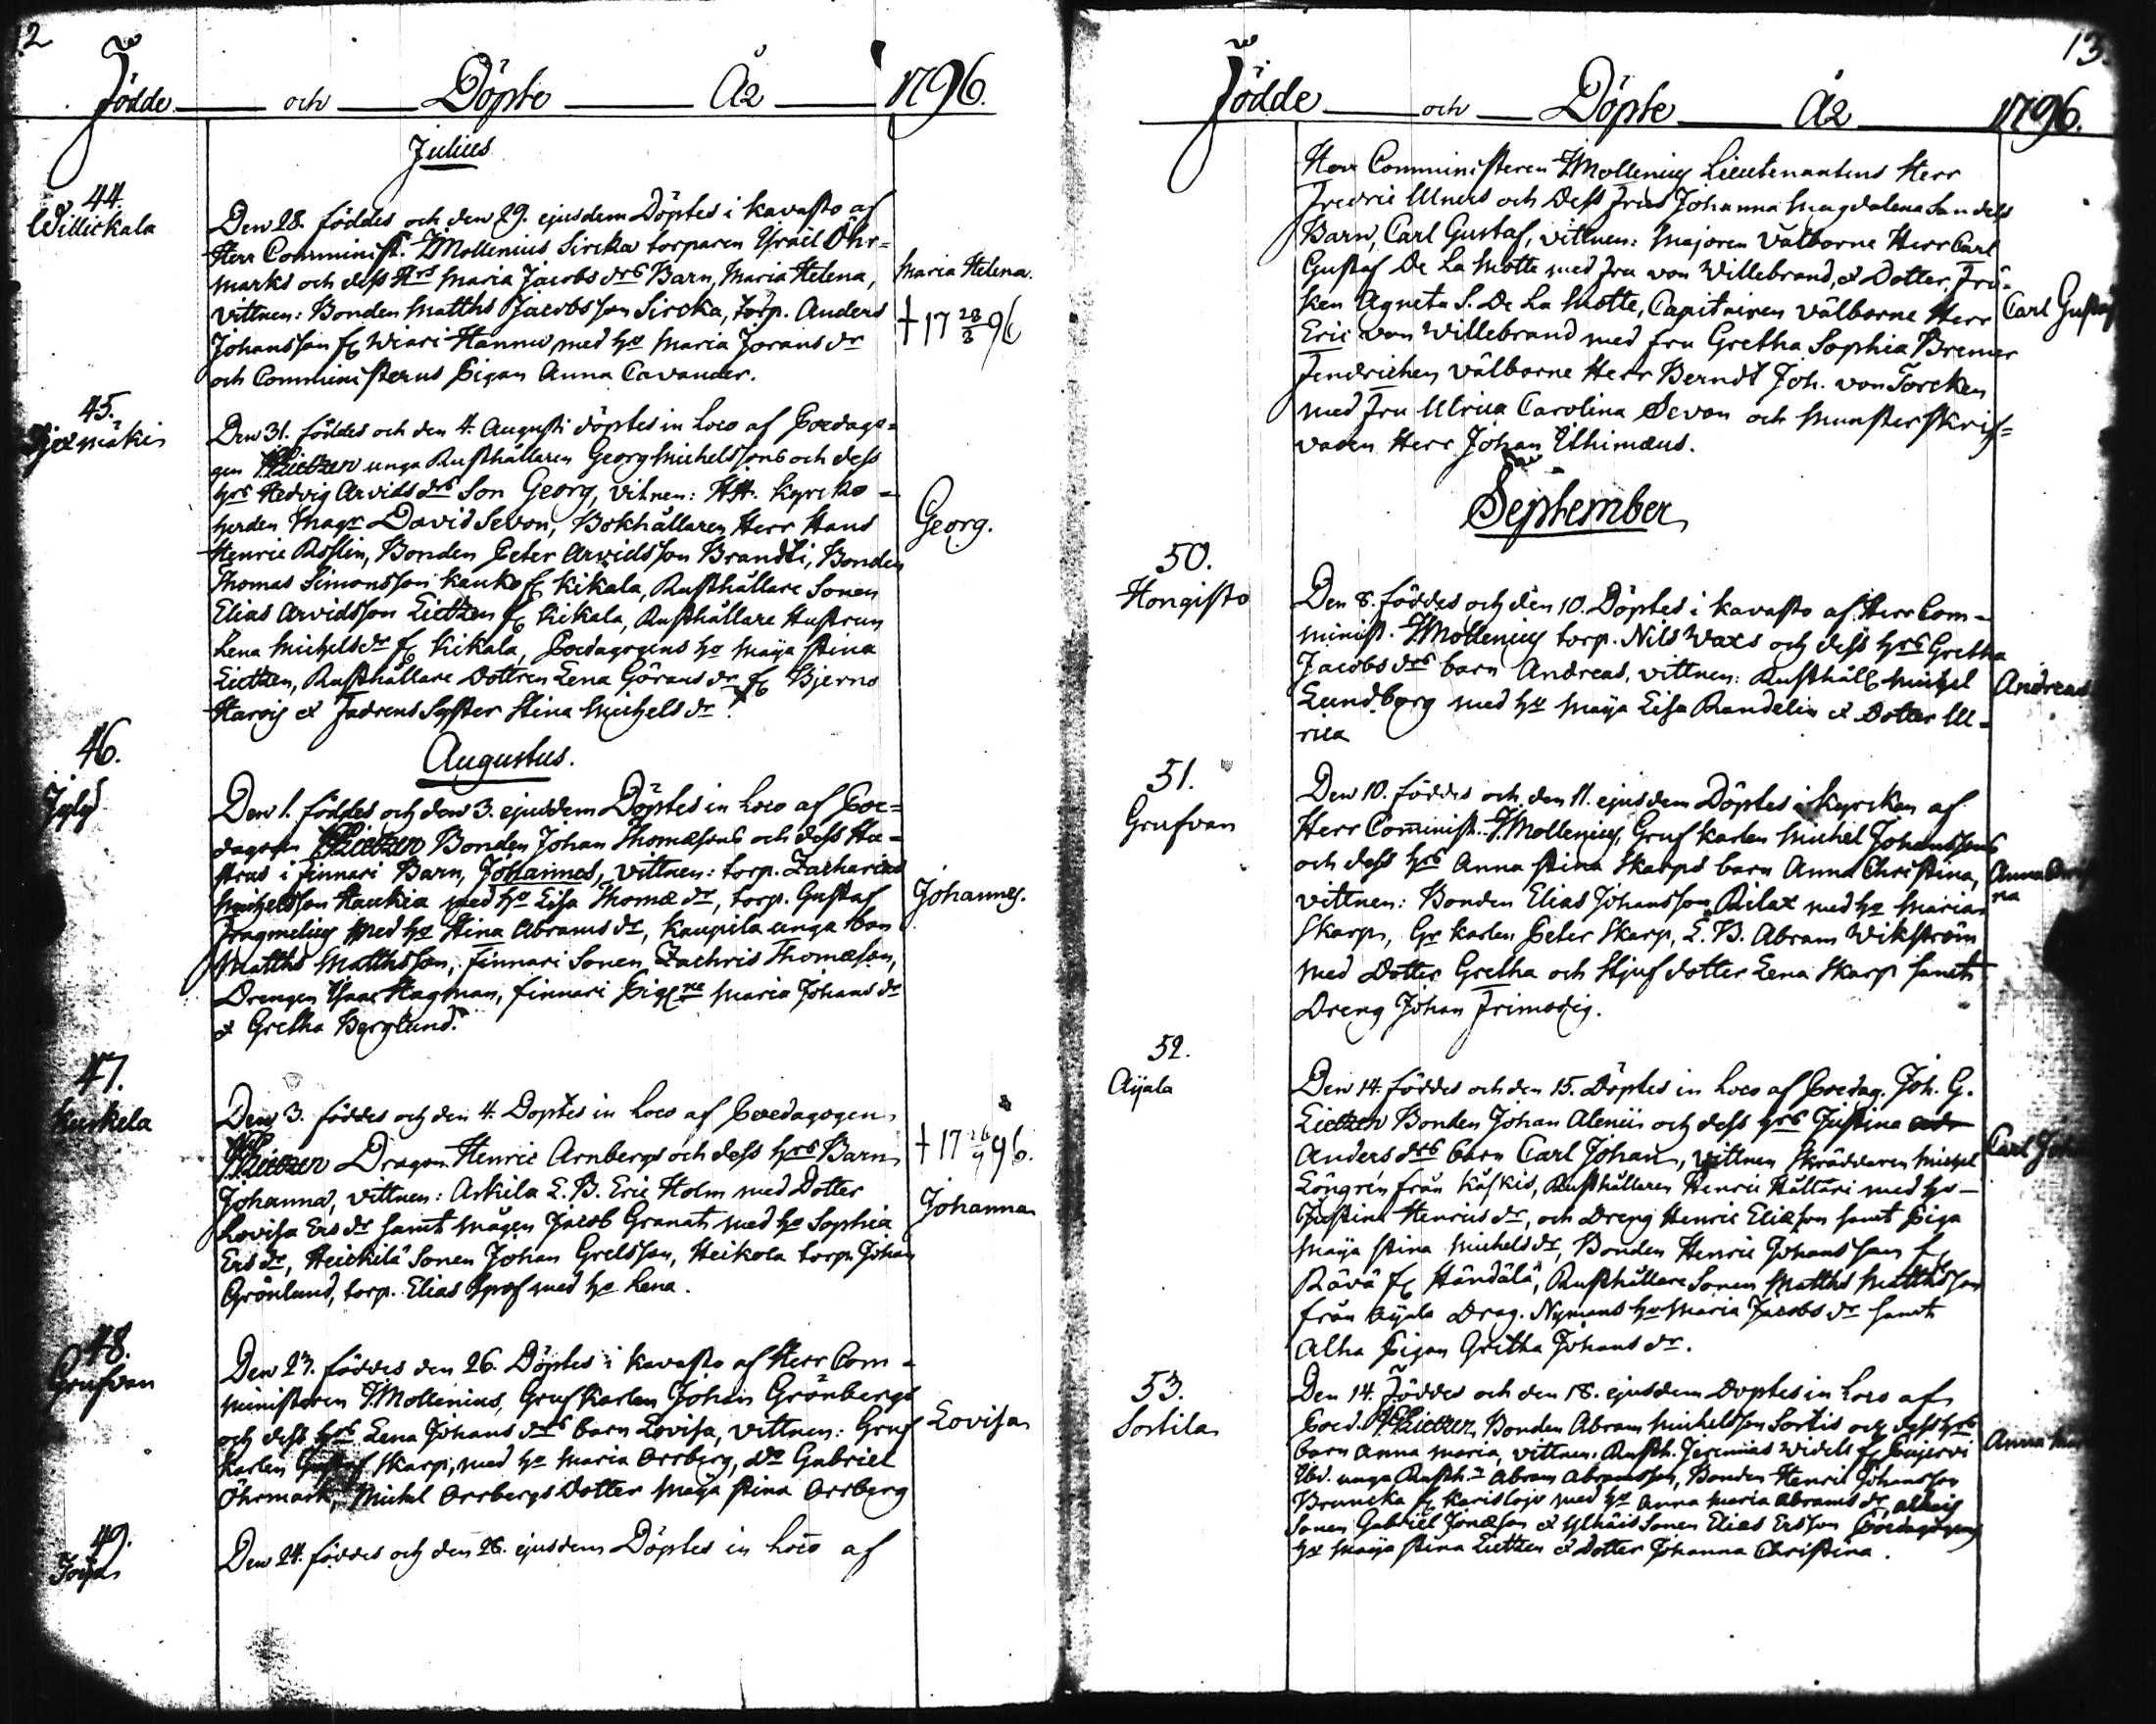 12
Födde och Döpte År 1796.
Julius
44.
Willickala
Den 28. föddes och den 29. ejusdem Döptes i Kavasto af
Herr Comminist. J Mollenius Sircka torparen Israël Öhr=
marks och dess Hrs Maria Jacobs drs Barn, Maria Helena,
vittnen: Bonden Matths Jacobsson Sircka, torp. Anders
Johansson fr Wiari Hannu med ho Maria Jorans dr
och Comministerns Pigan Anna Cavander.
Maria Helena.
† 17 28/3 96
45.
Den 31. föddes och den 4. Augusti döptes in Loco af Poedago=
gen Lietzen unga Rusthållaren Georg Michelssons och dess
hrs Hedvig Arvids drs Son Georg, vitnen: HH. Kyrcko=
herden Magr David Sevon, Bokhållaren Herr Hans
Henric Roslin, Bonden Peter Arvidsson Brandti, Bonden
Thomas Simonsson Kauko fr Kikala, Rusthållare Sonen
Elias Arvidsson Lietzen fr Kikala, Rusthållare Hustrun
Lena Michelsdr fr Kikala, Poedagogens ho Maija Stina
Lietzen, Rusthållare dottren Lena Görans dr fr Bjerno
Harvis & Fadrens Syster Stina Michels dr.
Georg.
Augustus.
46.
Jyly
Den 1. föddes och den 3. ejusdem Döptes in Loco af Poe=
dagogen Lietzen Bonden Johan Thomæsons och dess Hu=
strus i Finnari Barn, Johannes, vittnen: torp. Zacharias
Michelsson Haukia med ho Lisa Thomæ dr, torp. Gustaf
Fragmelius med ho Stina Abrams dr, Kaupila unga bon
Matths Matthsson, Finnari Sonen Zachris Thomæson,
Drengen Isaac Hagman, Finnari Pigrne Maria Johans dr
& Gretha Berglund.
Johannes.
47.
Kuskela
Den 3. föddes och den 4. Doptes in Loco af Poedagogen
Lietzen Dragon Henric Arnbergs och dess hrs Barn
Johanna, vittnen: Arkila L. B. Eric Holm med Dotter
Lovisa Ers dr samt Mågen Jacob Granat med ho Sophia
Ers dr, Heickilä Sonen Johan Grelsson, Heikola torpn Johan
Grönlund, torp. Elias Spof med ho Lena.
† 17 26/9 96.
Johanna
48.
Grufvan
Den 23. föddes den 26. Döptes i Kavasto af Herr Com=
ministeren J. Mollenius, Gruf Karlen Johan Grönbergs
och dess hrs Lena Johans drs barn Lovisa, vittnen: Gruf
karlen Gustaf Skarp, med ho Maria Orrberg, do Gabriel
Öhrmark, Michel Orrbergs Dotter Maija Stina Orrberg
Lovisa
49.
Den 24. föddes och den 26. ejusdem Döptes in Loco af
13.
Födde och Döpte År 1796.
Herr Comministeren J Mollenius Lieutenantens Herr
Fredric Ulners och Dess Frus Johanna Magdalena Sandels
Barn, Carl Gustaf, vittnen: Majoren Välborne Herr Carl
Gustaf De La Motte med Fru von Willebrand, & Dotter, Frö=
ken Agneta S. De La Motte, Capitainen Välborne Herr
Eric von Willebrand med Fru Gretha Sophia Bremer
Fendrichen Välborne Herr Berndt Joh. von Torcken
med Fru Ulrica Carolina Sevon och Munsterskrif=
varen Herr Johan Ithimæus.
Carl Gustaf
September
50.
Hongisto
Den 8. föddes och den 10. Döptes i Kavasto af Herr Com=
minist. J. Mollenius torp. Nils Waxs och dess hrs Gretha
Jacobs drs barn Andreas, vittnen: Rusthåll Michel
Lundberg med ho Maija Lisa Randelin & Dotter Ul=
rica
Andreas
51.
Grufvan
Den 10. föddes och den 11. ejusdem Döptes i Kyrcken af
Herr Cominist. J. Mollenius, Gruf Karlen Michel Johanssons
och dess hrs Anna Stina Skarps barn Anna Christina,
vittnen: Bonden Elias Johansson Rilax med ho Maria
Skarp, Gr Karlen Peter Skarp, L. B. Abram Wikström
med Dotter Gretha och Stjuf dotter Lena Skarp samt
Dreng Johan Frimodig.
52.
Aijala
Den 14. föddes och den 15. Döptes in Loco af Poedag. Joh. G.
Lietzen Bonden Johan Alenii och dess hrs Justina
Anders drs barn Carl Johan, vittnen Skräddaren Michel
Löngren från Koskis, Rusthållaren Henric Hålttäri med ho
Justina Henrics dr, och Dreng Henric Eliæson samt Piga
Maija Stina Michels dr, Bonden Henric Johansson
Rävä fr Händälä, Rusthållare Sonen Matths Matthsson
från Aijala Drag. Nymans ho Maria Jacobs dr samt
Alha Pigan Gretha Johans dr.
Carl Johan
53.
Sortila
Den 14. Föddes och den 18. ejusdem Doptes in Loco af
Poed. Lietzen Bonden Abram Michelsson Sortis och dess hrs
barn Anna Maria, vittnen. Rusth. Jeremias Widels fr Pujervi
Ibid. unga Rusth.n Abram Abramsson, Bonden Henric Johansson
Bruncka fr Karislojo med ho Anna Maria Abrams dr
Sonen Gabriel Jonæson & Ylhäis Sonen Elias Ersson Poedagogens
ho Maija Stina Lietzen & Dotter Johanna Christina.